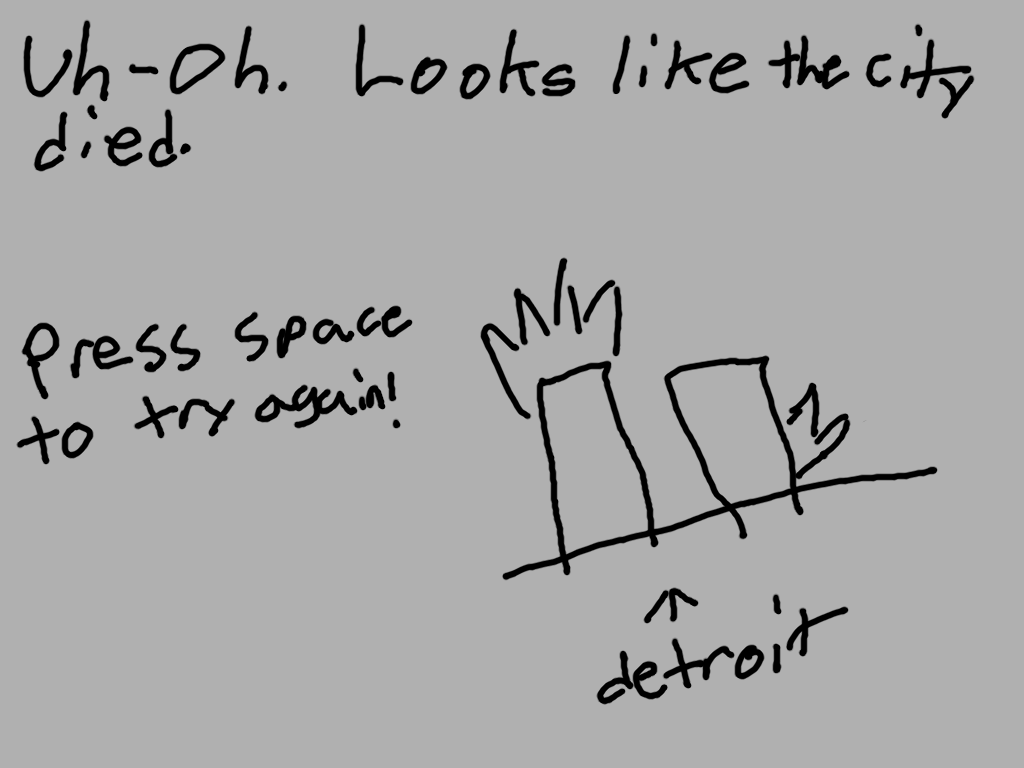 Uh-Oh. Looks like the city
died.
Press space
to try again!
detroit